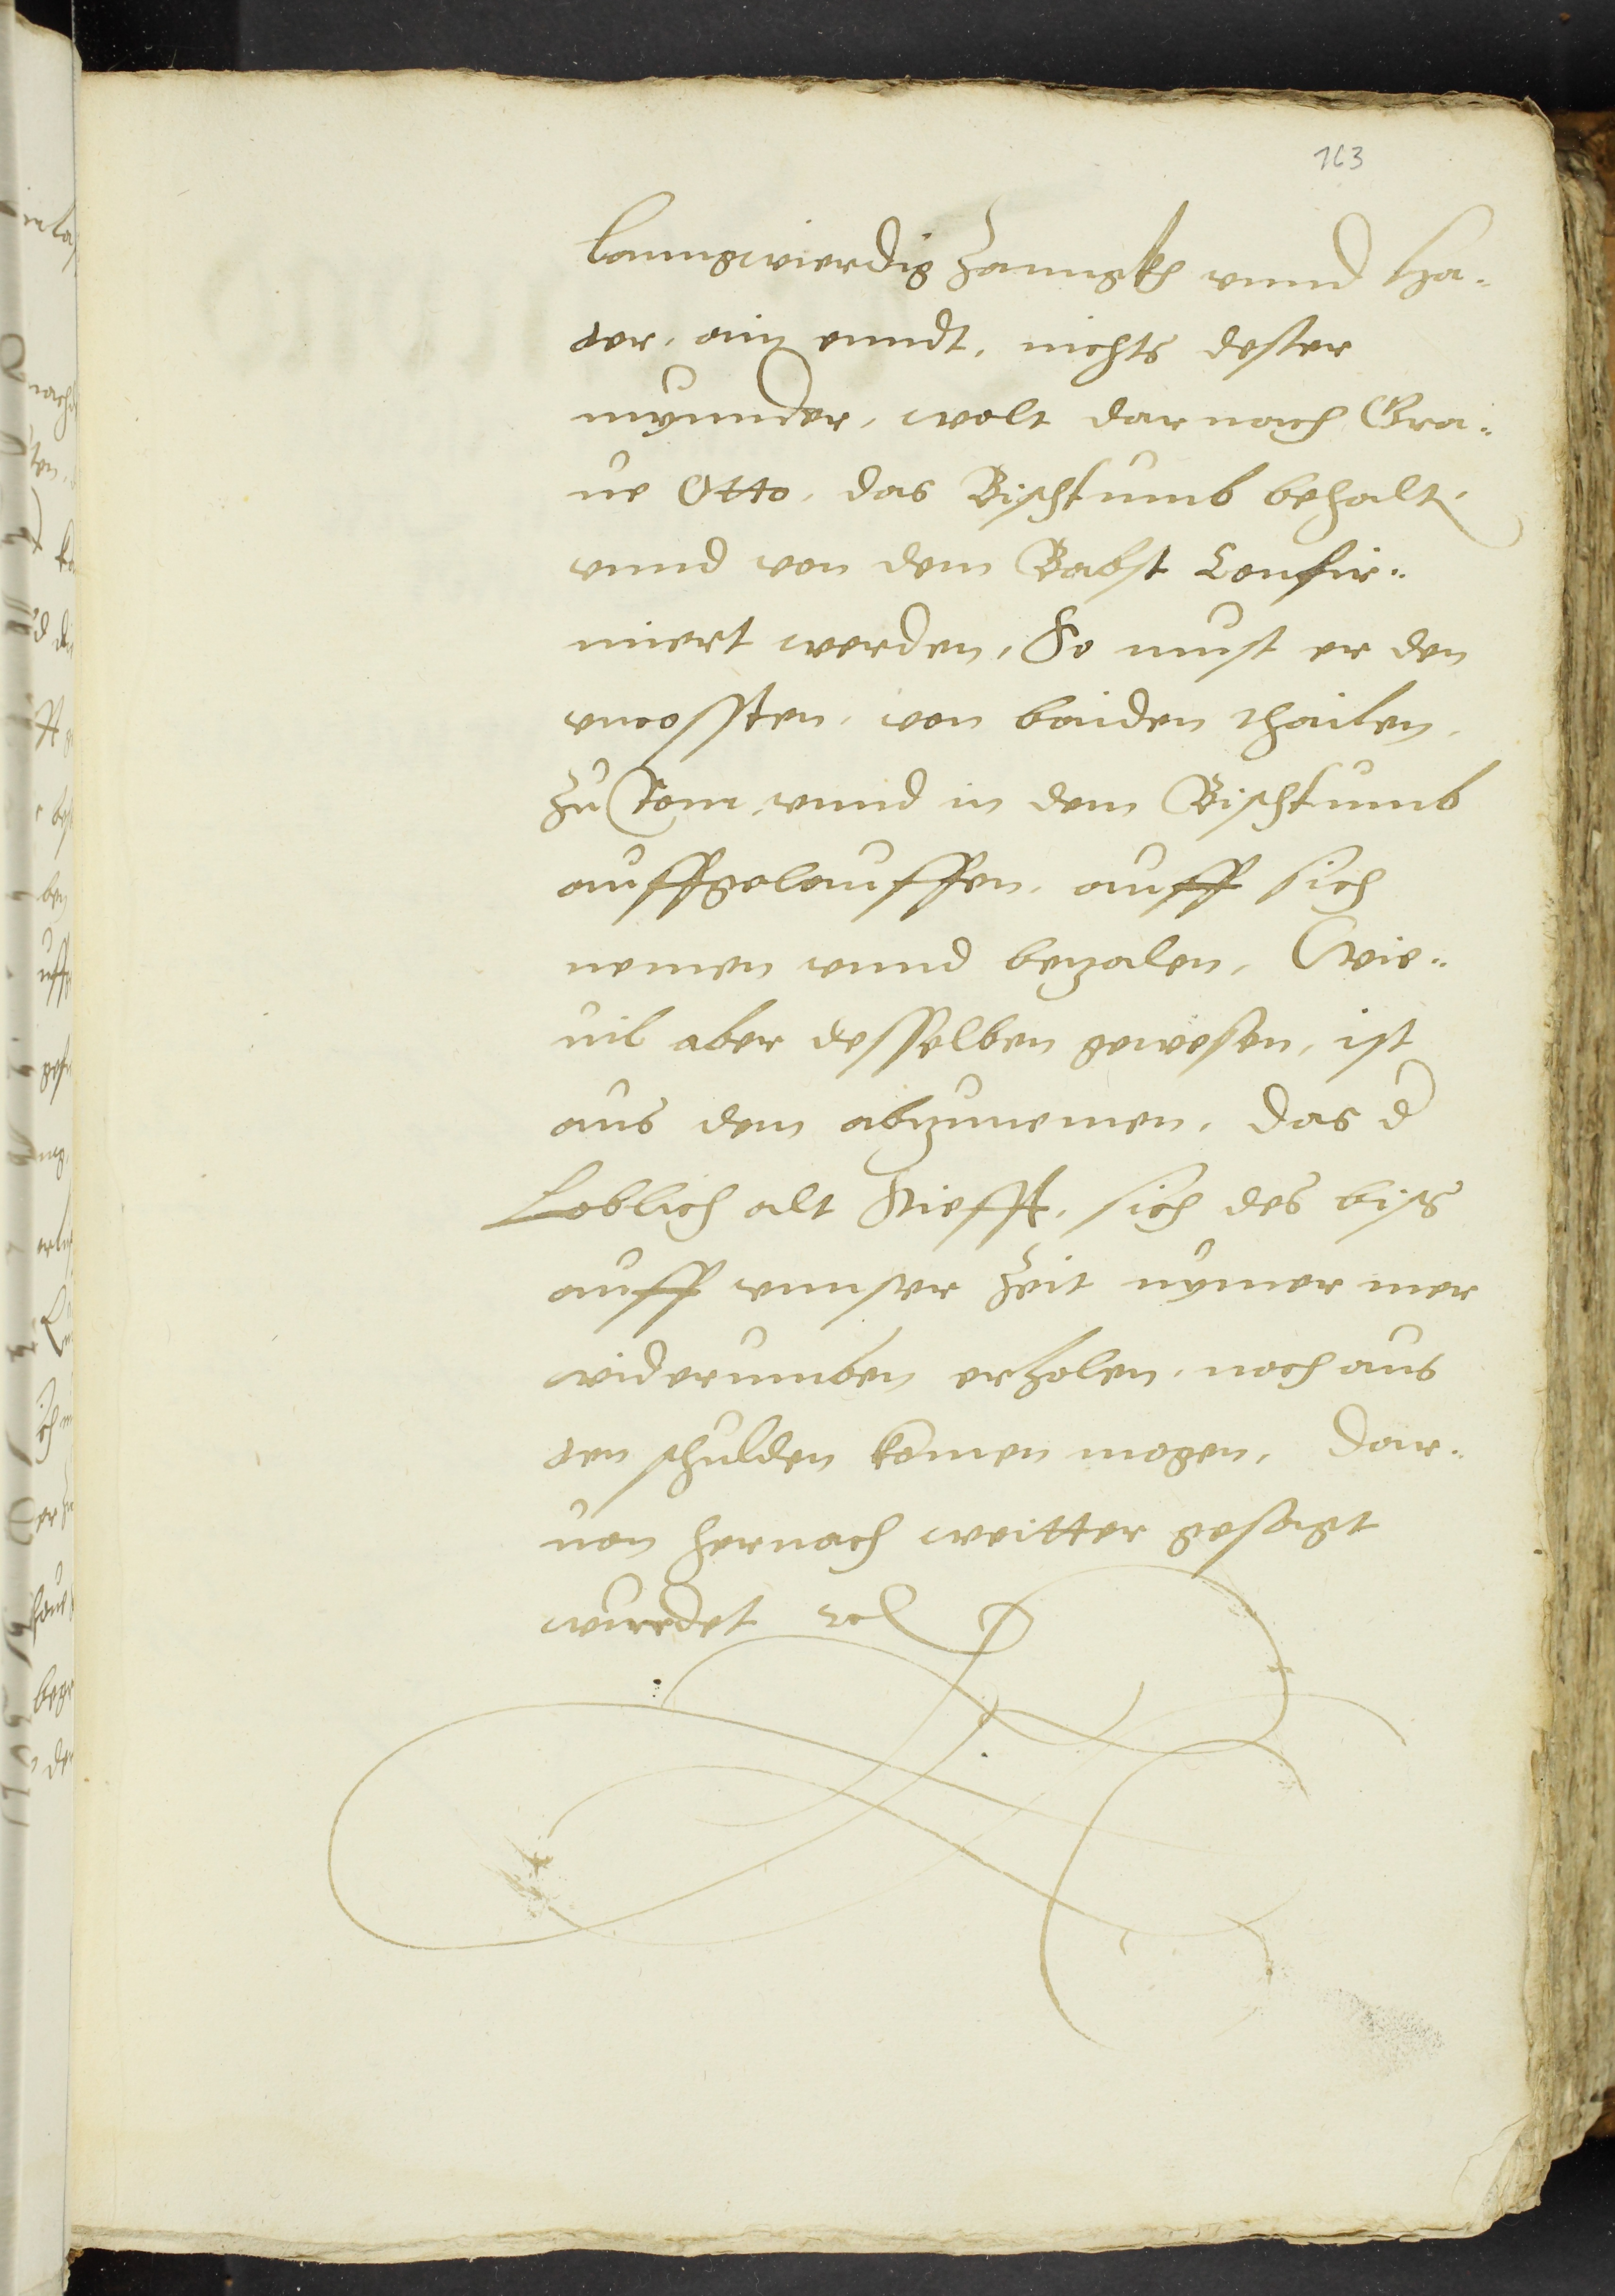 163
lanngwierdig Zanngkh vnnd ha¬
der, ain ennдt, nichts dester
mynnder, wolt darnach Gra¬
ue Otto, das Bischtumb behalt,
vnnd von dem Babst Confir¬
miert werden, So must er den
vncossten, von baiden thailen,
zu Rom, vnnd in dem Bischtumb
auffgelauffen, auff sich
nemen vnnd bezalen, Wie¬
uil aber desselben gewesen, ist
aus dem abzunemen, das d
Loblich alt Stiefft, sich des biss
auff vnnser Zeit nymer mer
widerumben erholen, noch aus
den schulden komen mogen, Dar¬
uon hernach weitter gesagt
wurdet